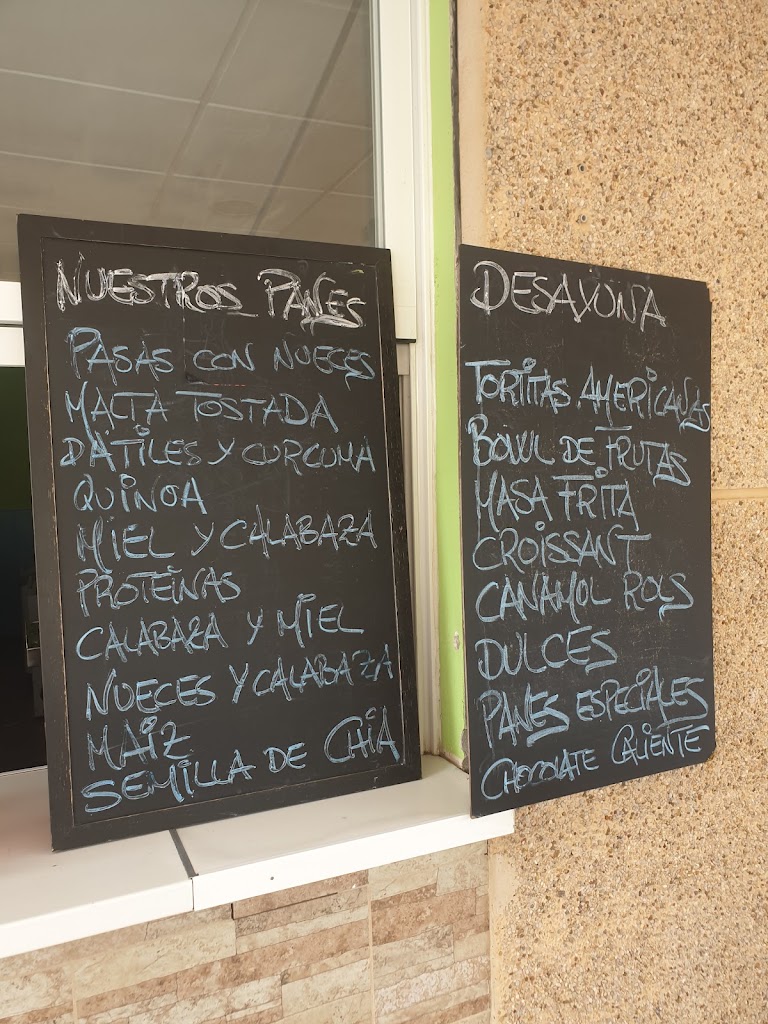 NUESTROS PANES
PASAS CON NUECES
MALTA TOSTADA
DÁTILES Y CURCUMA
QUINOA
MIEL Y CALABAZA
PROTEINAS
CALABAZA Y MIEL
NUECES Y CALABAZA
MAÍZ
SEMILLA DE CHIA
DESAYUNA
TORTITAS AMERICANAS
BOWL DE FRUTAS
MASA FRITA
CROISSANT
CANAMOL ROLS
DULCES
PANES ESPECIALES
CHOCOLATE CALIENTE